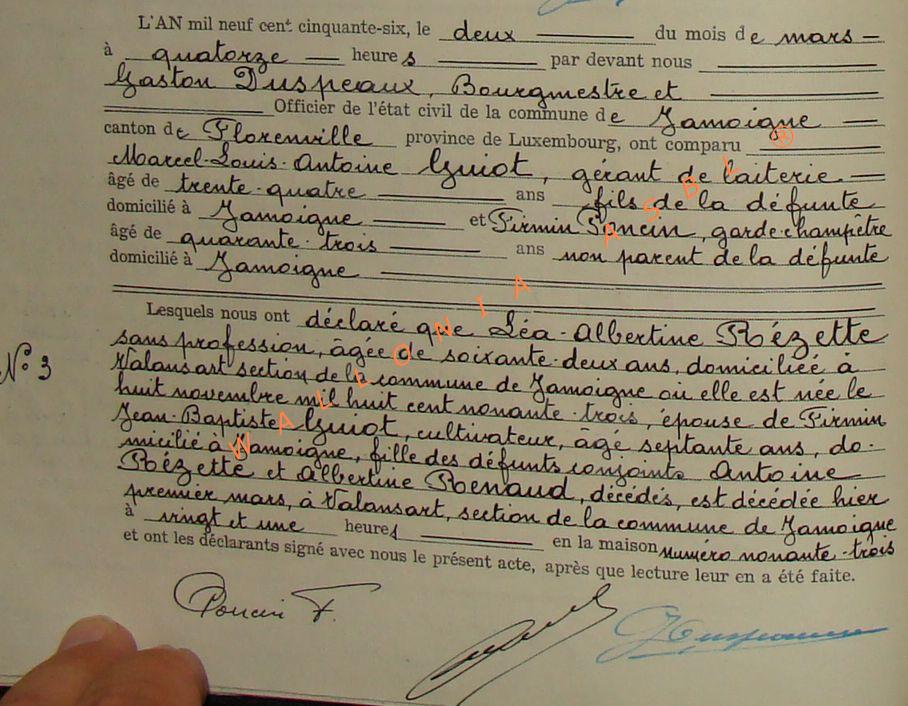 L'AN mil neuf cent cinquante-six, le deux du mois de mars
à quatorze heures par devant nous
Gaston Duspeaux, Bourgmestre et
Officier de l'état civil de la commune de Jamoigne
canton de Florenville province de Luxembourg, ont comparu
Marcel-Louis-Antoine Guiot, gérant de laiterie
âgé de trente-quatre ans fils de la défunte
domicilié à Jamoigne et Firmin Poncin, garde-champêtre
âgé de quarante-trois ans non parent de la défunte
domicilié à Jamoigne
Lesquels nous ont déclaré que Léa-Albertine Rézette
sans profession, âgée de soixante-deux ans, domiciliée à
N° 3
Valansart section de la commune de Jamoigne où elle est née le
huit novembre mil huit cent nonante-trois, épouse de Firmin
Jean-Baptiste Guiot, cultivateur, âgé septante ans, do-
micilié à Jamoigne, fille des défunts conjoints Antoine
Rézette et Albertine Renaud, décédés, est décédée hier
premier mars, à Valansart, section de la commune de Jamoigne
à vingt et une heures en la maison numéro nonante-trois
et ont les déclarants signé avec nous le présent acte, après que lecture leur en a été faite.
Poncin F.
WALLONIA ASBL ®